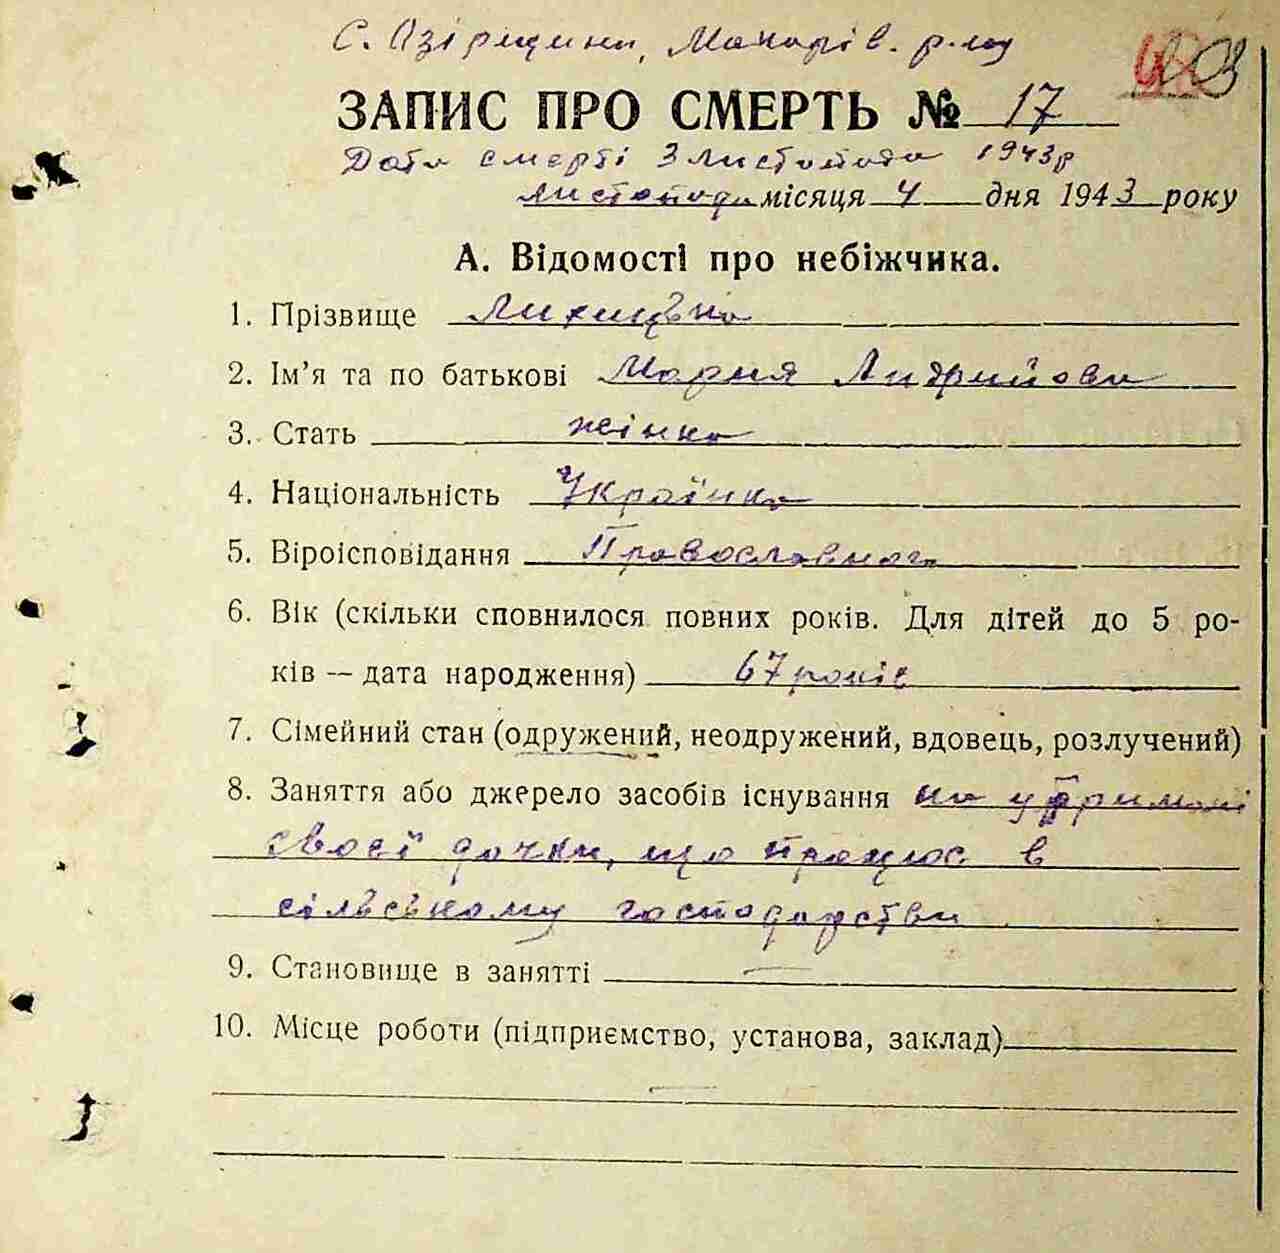 с. Озірщина, Макарів. р-ну
ЗАПИС ПРО СМЕРТЬ № 17
Дата смерті 3 листопада 1943 р
листопада місяця 4 дня 1943 року
А. Відомості про небіжчика.
1. Прізвище
2. Ім'я та по батькові Мария Андрийовна
3. Стать жінка
4. Національність Українка
5. Віроісповідання Православного
6. Вік (скільки сповнилося повних років. Для дітей до 5 ро-
ків — дата народження) 67 років
7. Сімейний стан (одружений, неодружений, вдовець, розлучений)
8. Заняття або джерело засобів існування на утримані
своєї дочки, що працює в
сільському господарстви
9. Становище в занятті —
10. Місце роботи (підприємство, установа, заклад)
—